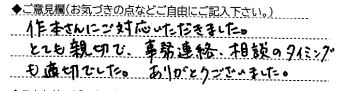 ◆ご意見欄(お気づきの点などご自由にご記入下さい。)
作本さんにご対応いただきました。
とても親切で、事務連絡、相談のタイミング
も適切でした。ありがとうございました。